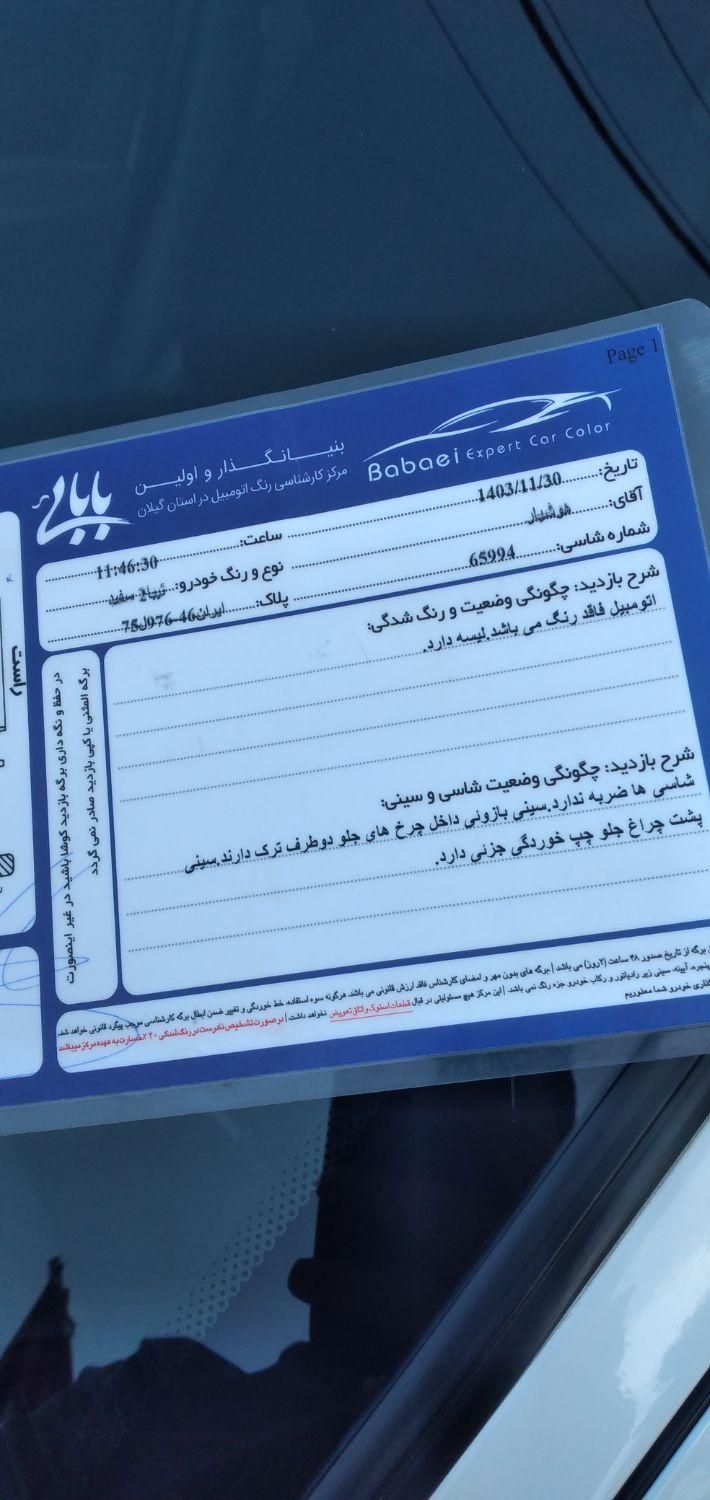 Page 1
Babaei Expert Car Color
بنیانگذار و اولین
مرکز کارشناسی رنگ اتومبیل در استان گیلان
بابایی
تاریخ: 1403/11/30
ساعت: 11:46:30
آقای: هوشیار
نوع و رنگ خودرو: تیبا2-سفید
شماره شاسی: 65994
پلاک:
شرح بازدید: چگونگی وضعیت و رنگ شدگی:
اتومبیل فاقد رنگ می باشد.لیسه دارد.
شرح بازدید: چگونگی وضعیت شاسی و سینی:
شاسی ها ضربه ندارد.سینی بازوئی داخل چرخ های جلو دوطرف ترک دارند.سینی
پشت چراغ جلو چپ خوردگی جزئی دارد.
در حفظ و نگه داری برگه بازدید کوشا باشید در غیر اینصورت
برگه المثنی یا کپی بازدید صادر نمی گردد
راست
برگه از تاریخ صدور ۴۸ ساعت (۲روز) می باشد | برگه های بدون مهر و امضای کارشناس فاقد ارزش قانونی می باشند هرگونه سوء استفاده، خط خوردگی و تغییر ضمن ابطال برگه کارشناسی موجب پیگرد قانونی خواهد شد.
پنجره، آیینه، سینی زیر رادیاتور و رکاب خودرو جزء رنگ نمی باشد. | این مرکز هیچ مسئولیتی در قبال قطعات استوک و اتاق تعویض نخواهد داشت. | در صورت تشخیص نادرست در رنگ شدگی ۲۰٪ خسارت به عهده مرکز میباشد
خودرو شما معذوریم